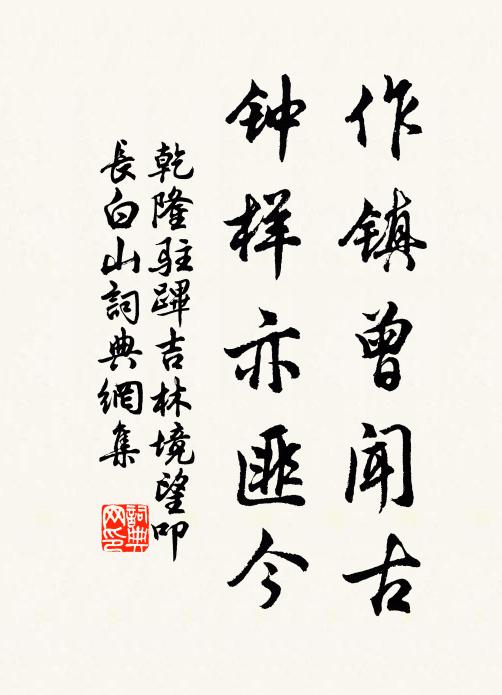 作镇曾闻古
钟样亦匪今
乾隆驻蹕吉林境望叩
長白山詞典網集
詞典网印